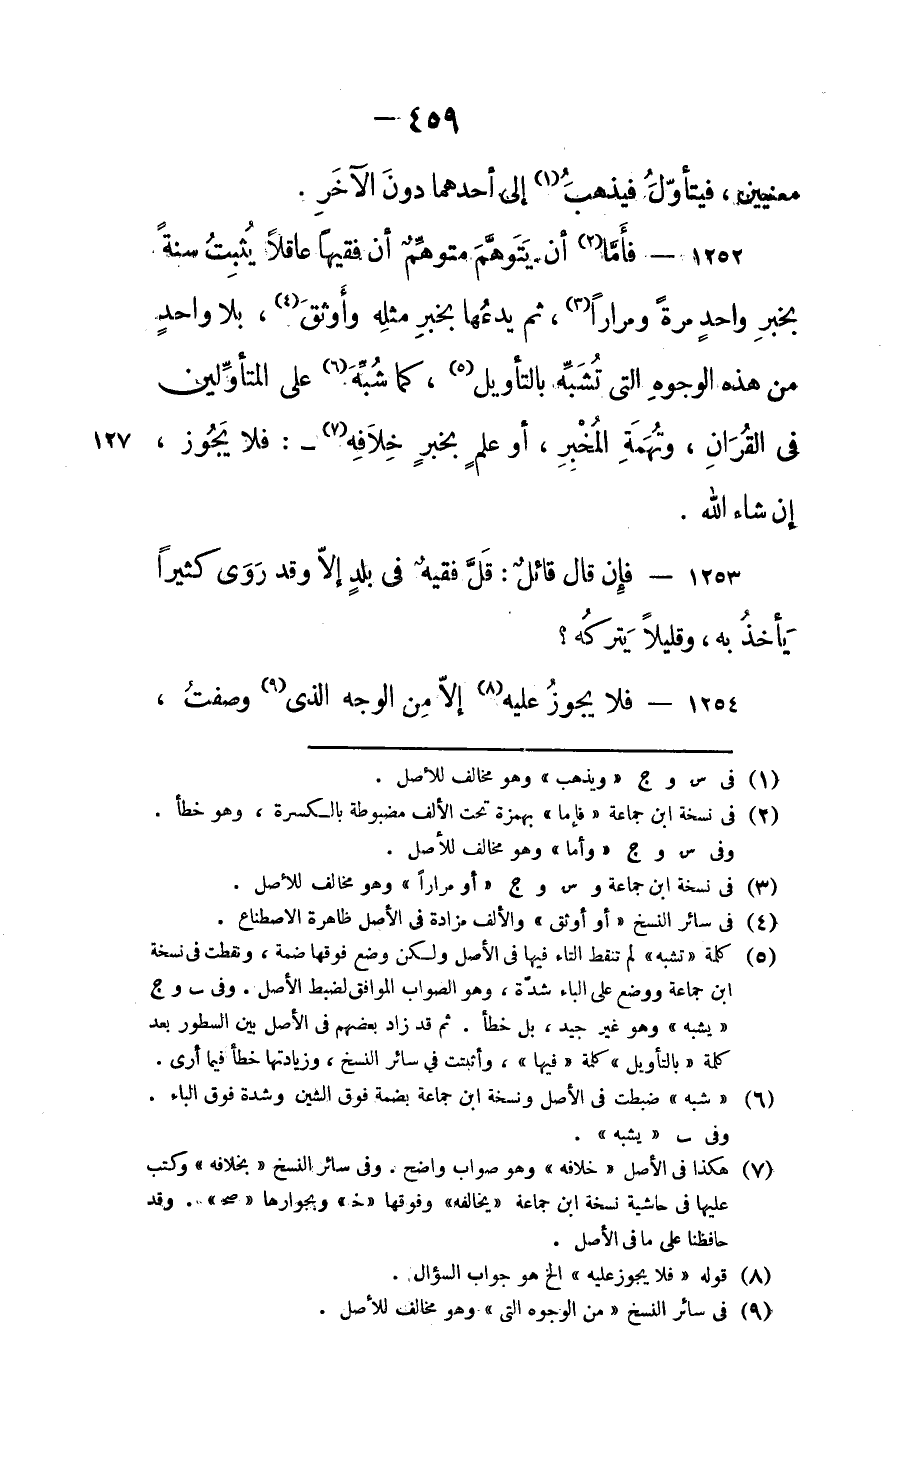 — ٤٥٩
معنيين ، فيتأوّلُ فيذهبُ (١) إلى أحدهما دونَ الآخَرِ .
١٢٥٢ — فأمَّا (٢) أن يَتَوهَّمَ متوهِّمٌ أن فقيهاً عاقلاً يُثبِتُ سنةً
بخبرِ واحدٍ مرةً ومراراً (٣) ، ثم يدعُها بخبرٍ مثلِه وأَوثقَ (٤) ، بلا واحدٍ
من هذه الوجوهِ التى تُشَبِّه بالتأويل (٥) ، كما شُبِّهَ (٦) على المتأوِّلين
فى القُرَانِ ، وتُهَمَةِ المُخْبِرِ ، أو علمٍ بخبرٍ خِلاَفِه (٧) ــ : فلا يَجُوز ، ١٢٧
إن شاء الله .
١٢٥٣ — فإن قال قائلٌ : قَلَّ فقيهٌ فى بلدٍ إلاّ وقد رَوَى كثيراً
يَأخذُ به ، وقليلاً يَتركُه ؟
١٢٥٤ — فلا يجوزُ عليه (٨) إلاّ مِن الوجه الذى (٩) وصفتُ ،
(١) فى س و ج « ويذهب » وهو مخالف للأصل .
(٢) فى نسخة ابن جماعة « فإما » بهمزة تحت الألف مضبوطة بالكسرة ، وهو خطأ .
وفى س و ج « وأما » وهو مخالف للأصل .
(٣) فى نسخة ابن جماعة و س و ج « أو مراراً » وهو مخالف للأصل .
(٤) فى سائر النسخ « أو أوثق » والألف مزادة فى الأصل ظاهرة الاصطناع .
(٥) كلمة « تشبه » لم تنقط التاء فيها فى الأصل ولكن وضع فوقها ضمة ، ونقطت فى نسخة
ابن جماعة ووضع على الباء شدّة ، وهو الصواب الموافق لضبط الأصل . وفى ب و ج
« يشبه » وهو غير جيد ، بل خطأ . ثم قد زاد بعضهم فى الأصل بين السطور بعد
كلمة « بالتأويل » كلمة « فيها » ، وأثبتت في سائر النسخ ، وزيادتها خطأ فيما أرى .
(٦) « شبه » ضبطت فى الأصل ونسخة ابن جماعة بضمة فوق الشين وشدة فوق الباء .
وفى ب « يشبه » .
(٧) هكذا فى الأصل « خلافه » وهو صواب واضح . وفى سائر النسخ « بخلافه » وكتب
عليها فى حاشية نسخة ابن جماعة « يخالفه » وفوقها « خـ » وبجوارها « صح » . وقد
حافظنا على ما فى الأصل .
(٨) قوله « فلا يجوز عليه » الخ هو جواب السؤال .
(٩) فى سائر النسخ « من الوجوه التى » وهو مخالف للأصل .